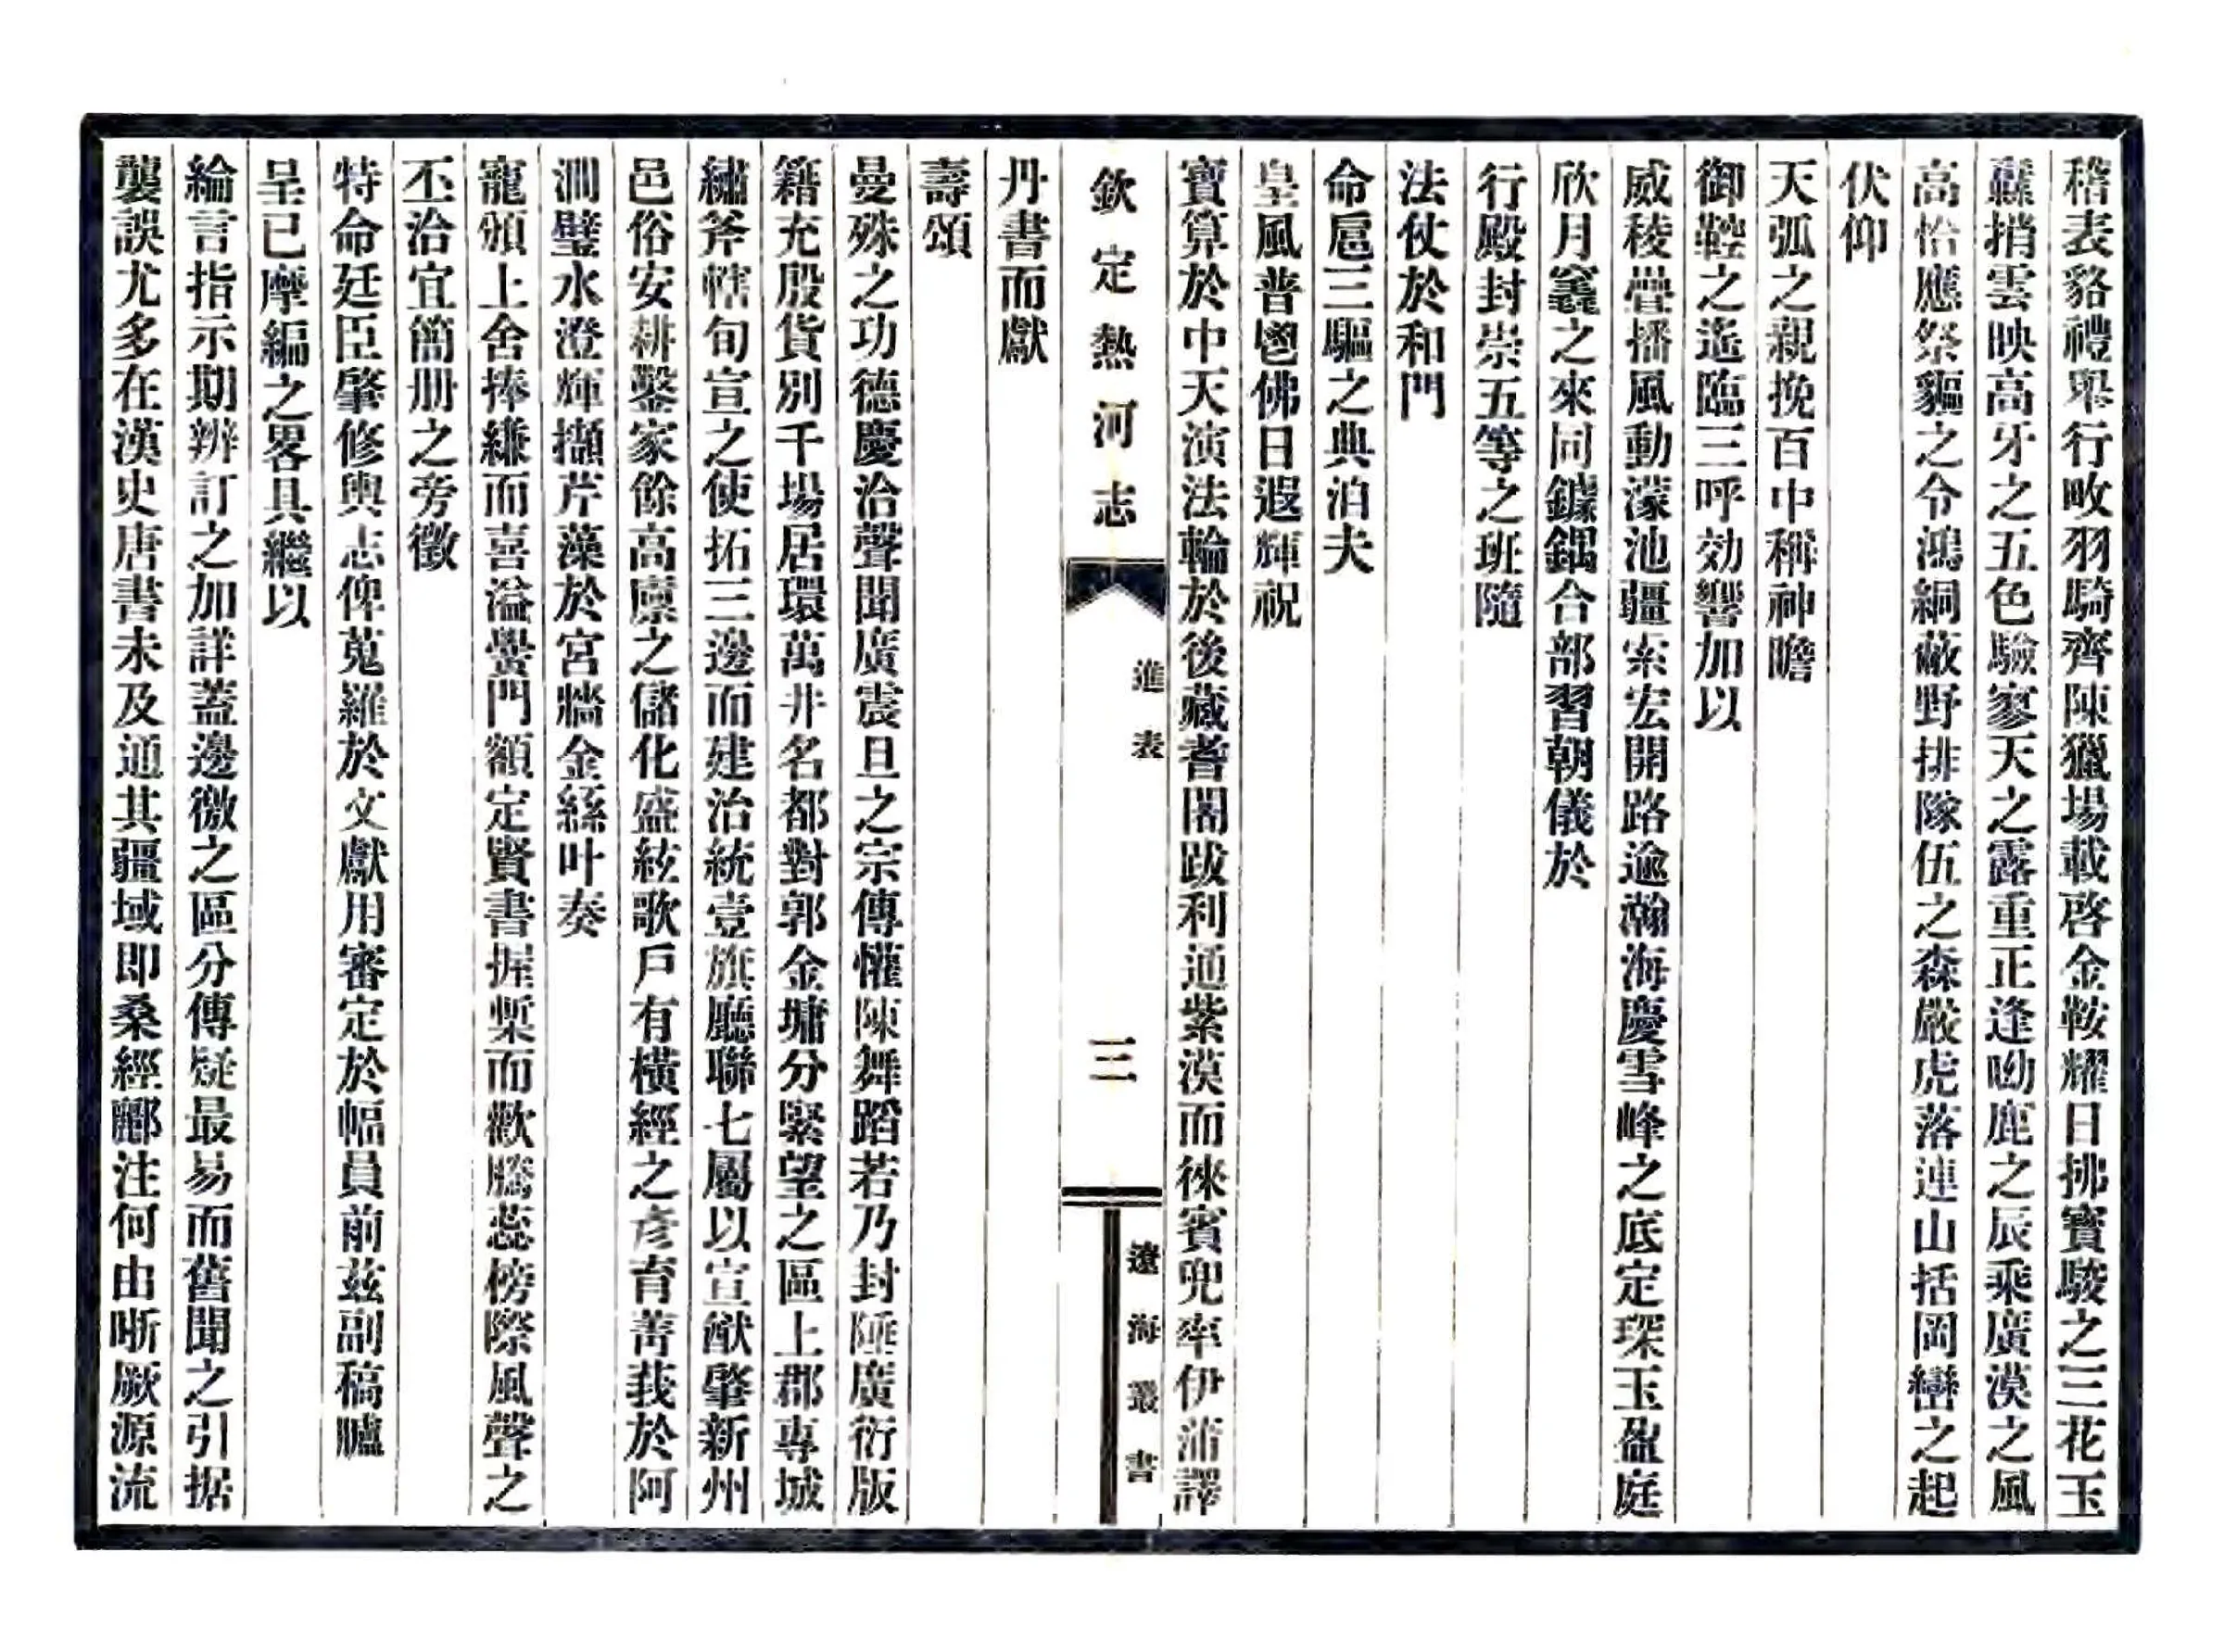 稽表貉禮舉行畋羽騎齊陳獵場載啓金鞍耀日拂寶駿之三花玉
纛捎雲映高牙之五色驗寥天之露重正逢呦鹿之辰乘廣漠之風
高恰應祭貙之令鴻絅蔽野排隊伍之森嚴虎落連山括岡巒之起
伏仰
天弧之親挽百中稱神瞻
御鞚之遙臨三呼効響加以
威稜疊播風動濛池疆索宏開路逾瀚海慶雪峰之底定琛玉盈庭
欣月竁之來同鐻鍝合部習朝儀於
行殿封崇五等之班隨
法仗於和門
命扈三驅之典洎夫
皇風普鬯佛日遐輝祝
寶算於中天演法輪於後藏耆闍跋利通紫漠而徠賓兜率伊蒲譯
欽定熱河志
進表
三
遼海叢書
丹書而獻
壽頌
曼殊之功德慶洽聲聞廣震旦之宗傳懽陳舞蹈若乃封陲廣衍版
籍充殷貨別千場居環萬井名都對郭金墉分緊望之區上郡專城
繡斧轄旬宣之使拓三邊而建治統壹旗廳聯七屬以宣猷肇新州
邑俗安耕鑿家餘高廪之儲化盛絃歌戶有橫經之彥育菁莪於阿
澗璧水澄輝擷芹藻於宮牆金絲叶奏
寵頒上舍捧縑而喜溢黌門額定賢書握槧而歡騰蕊榜際風聲之
丕洽宜簡册之旁徵
特命廷臣肇修輿志俾蒐羅於文獻用審定於幅員前茲副稿臚
呈已摩編之畧具繼以
綸言指示期辨訂之加詳蓋邊徼之區分傳疑最易而舊聞之引据
襲誤尤多在漢史唐書未及通其疆域即桑經酈注何由晰厥源流